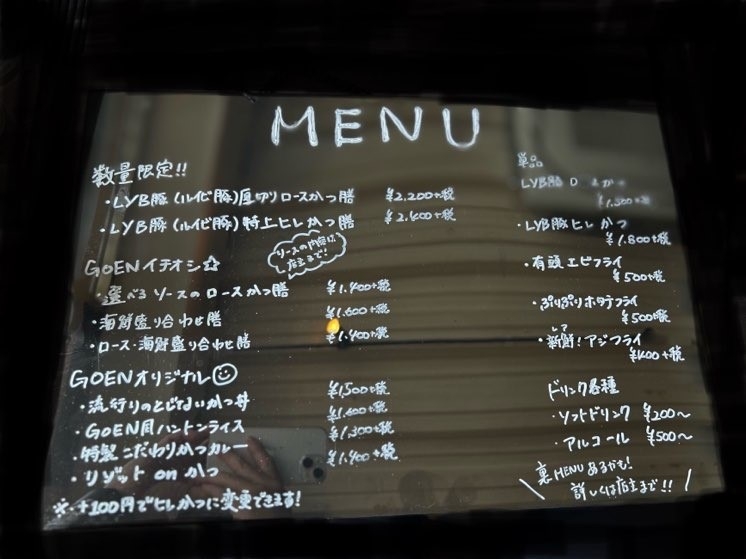 MENU
数量限定!!
・LYB豚(ルイビ豚)厚切りロースかつ膳 ¥2,200+税
・LYB豚(ルイビ豚)特上ヒレかつ膳 ¥2,400+税
ソースの内容は、
店主まで!
GOENイチオシ☆
・選べるソースのロースかつ膳 ¥1,400+税
・海鮮盛り合わせ膳 ¥1,600+税
・ロース・海鮮盛り合わせ膳 ¥1,400+税
GOENオリジナル
・流行りのとじないかつ丼 ¥1,500+税
・GOEN風ハントンライス ¥1,400+税
・特製こだわりかつカレー ¥1,300+税
・リゾット on かつ ¥1,400+税
※+100円でヒレかつに変更できます!
単品
LYB豚
・LYB豚ヒレかつ
¥1,800+税
・有頭エビフライ
¥500+税
・ぷりぷりホタテフライ
¥500+税
レア
・新鮮!アジフライ
¥400+税
ドリンク各種
・ソフトドリンク ¥200〜
・アルコール ¥500〜
\裏MENUあるかも!
詳しくは店主まで!!/